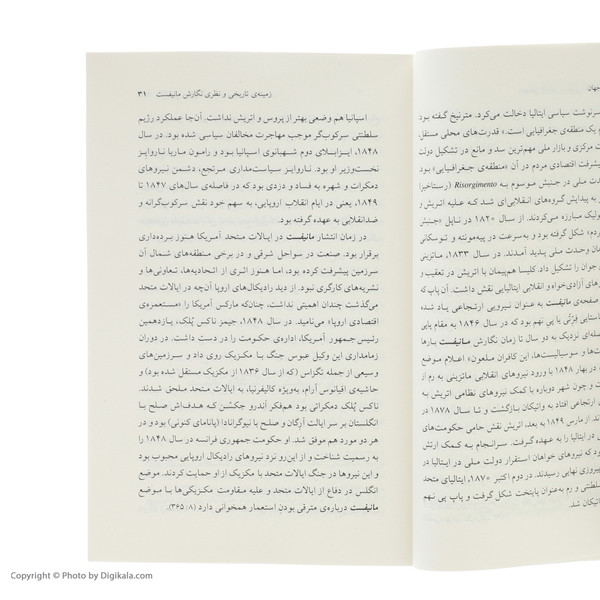 زمینه‌ی تاریخی و نظری نگارش مانیفست ۳۱
اسپانیا هم وضعی بهتر از پروس و اتریش نداشت. آن‌جا عملکرد رژیم
سلطنتی سرکوب‌گر موجب مهاجرت مخالفان سیاسی شده بود. در سال
۱۸۴۸، ایزابلای دوم شهبانوی اسپانیا بود و رامون ماریا ناروایز
نخست‌وزیر او بود. ناروایز سیاست‌مداری مرتجع، دشمن نیروهای
دمکرات و شهره به فساد و دزدی بود که در فاصله‌ی سال‌های ۱۸۴۷ تا
۱۸۴۹، یعنی در ایام انقلاب اروپایی، به سهم خود نقش سرکوب‌گرانه و
ضدانقلابی به عهده گرفته بود.
در زمان انتشار مانیفست در ایالات متحد آمریکا هنوز برده‌داری
برقرار بود. صنعت در سواحل شرقی و در برخی منطقه‌های شمال آن
سرزمین پیشرفت کرده بود، اما هنوز اثری از اتحادیه‌ها، تعاونی‌ها و
نشریه‌های کارگری نبود. از دید رادیکال‌های اروپا آن‌چه در ایالات متحد
می‌گذشت چندان اهمیتی نداشت، چنان‌که مارکس آمریکا را «مستعمره‌ی
اقتصادی اروپا» می‌نامید. در سال ۱۸۴۸، جیمز ناکس پُلک، یازدهمین
رئیس‌جمهور آمریکا، اداره‌ی حکومت را در دست داشت. در دوران
زمامداری این وکیل عبوس جنگ با مکزیک روی داد و سرزمین‌های
وسیعی از جمله تگزاس (که از سال ۱۸۳۶ از مکزیک مستقل شده بود) و
حاشیه‌ی اقیانوس آرام، به‌ویژه کالیفرنیا، به ایالات متحد ملحق شدند.
ناکس پُلک دمکراتی بود هم‌فکر آندرو جکسُن که هدف‌اش صلح با
انگلستان بر سر ایالت اُرگان و صلح با نیوگرانادا (پانامای کنونی) بود و در
هر دو مورد هم موفق شد. او حکومت جمهوری فرانسه در سال ۱۸۴۸ را
به رسمیت شناخت و از این‌رو نزد نیروهای رادیکال اروپایی محبوب بود
و این نیروها در جنگ ایالات متحد با مکزیک از او حمایت کردند. موضع
انگلس در دفاع از ایالات متحد و علیه مقاومت مکزیکی‌ها با موضع
مانیفست درباره‌ی مترقی بودنِ استعمار همخوانی دارد (۸: ۳۶۵).
جهان
سرنوشت سیاسی ایتالیا دخالت می‌کرد. مترنیخ گفته بود
یک منطقه‌ی جغرافیایی است.» قدرت‌های محلی مستقل،
مرکزی و بازار ملی مهم‌ترین سد و مانع در تشکیل دولت
پیشرفت اقتصادی مردم در آن «منطقه‌ی جغرافیایی» بود
دت ملی در جنبش موسوم به Risorgimento (رستاخیز)
به پیدایش گروه‌های انقلابی‌ای شد که علیه اتریش و
ولیک مبارزه می‌کردند. از سال ۱۸۲۰ در ناپل «جنبش
شکل گرفته بود و به‌سرعت در پیه‌مونته و توسکانی
وحدت ملی پدید آمدند. در سال ۱۸۳۳، ماتزینی
جوان را تشکیل داد. کلیسا هم‌پیمان با اتریش در تعقیب و
های آزادی‌خواه و انقلابی ایتالیایی نقش داشت. آن پاپ که
صفحه‌ی مانیفست به عنوان نیرویی ارتجاعی یاد شده
ماستایی فِرِتّی یا پی نهم بود که در سال ۱۸۴۶ به مقام پاپی
صله‌ای نزدیک به دو سال تا زمان نگارش مانیفست بارها
ها و سوسیالیست‌ها، این کافران ملعون» اعلام موضع
در بهار ۱۸۴۸ با ورود نیروهای انقلابی ماتزینی به رم از
و چون شهر دوباره با کمک نیروهای نظامی اتریش به
ارتجاعی افتاد به واتیکان بازگشت و تا سال ۱۸۷۸ در
از مارس ۱۸۴۹ به بعد، اتریش نقش حامی حکومت‌های
در ایتالیا را به عهده گرفت. سرانجام به کمک ارتش
بود که نیروهای خواهان استقرار دولت ملی در ایتالیا در
پیروزی نهایی رسیدند. در دوم اکتبر ۱۸۷۰، ایتالیای متحد
سلطنتی و رم به‌عنوان پایتخت شکل گرفت و پاپ پی نهم
تیکان شد.
Copyright © Photo by Digikala.com